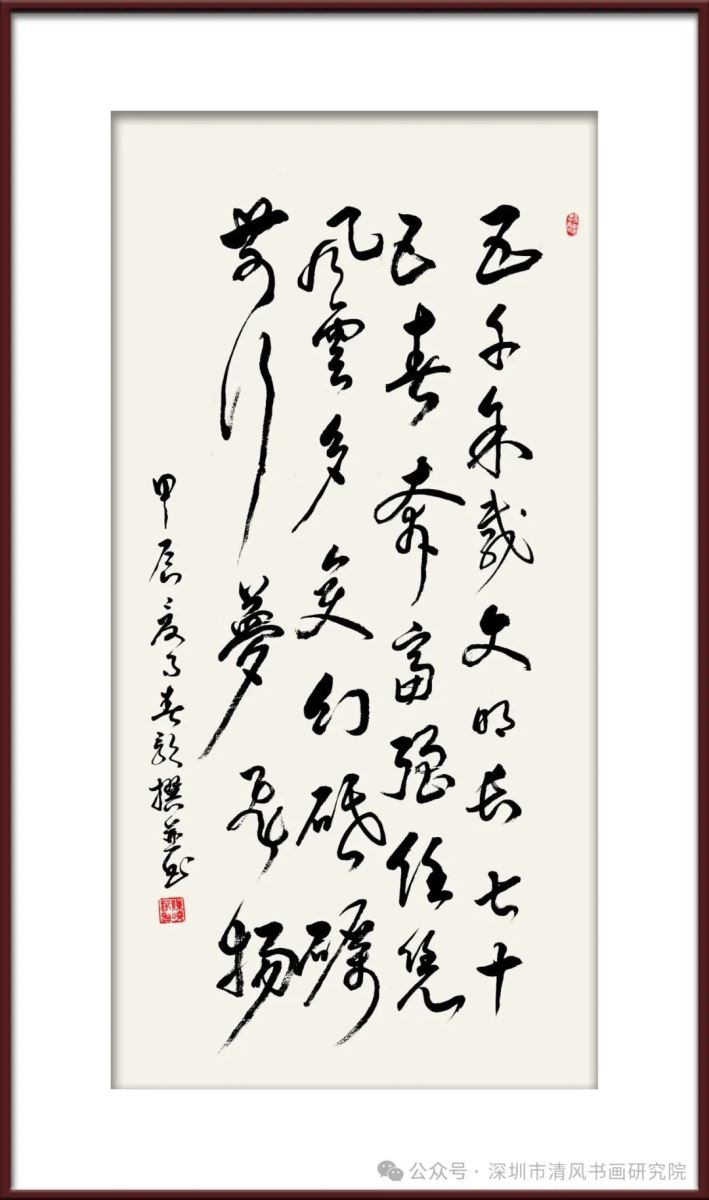 五千年载文明长七十
五春奔富强任凭
风雲多变幻砥砺
前行梦飞扬
甲辰夏月春歌撰并书
公众号·深圳市清风书画研究院